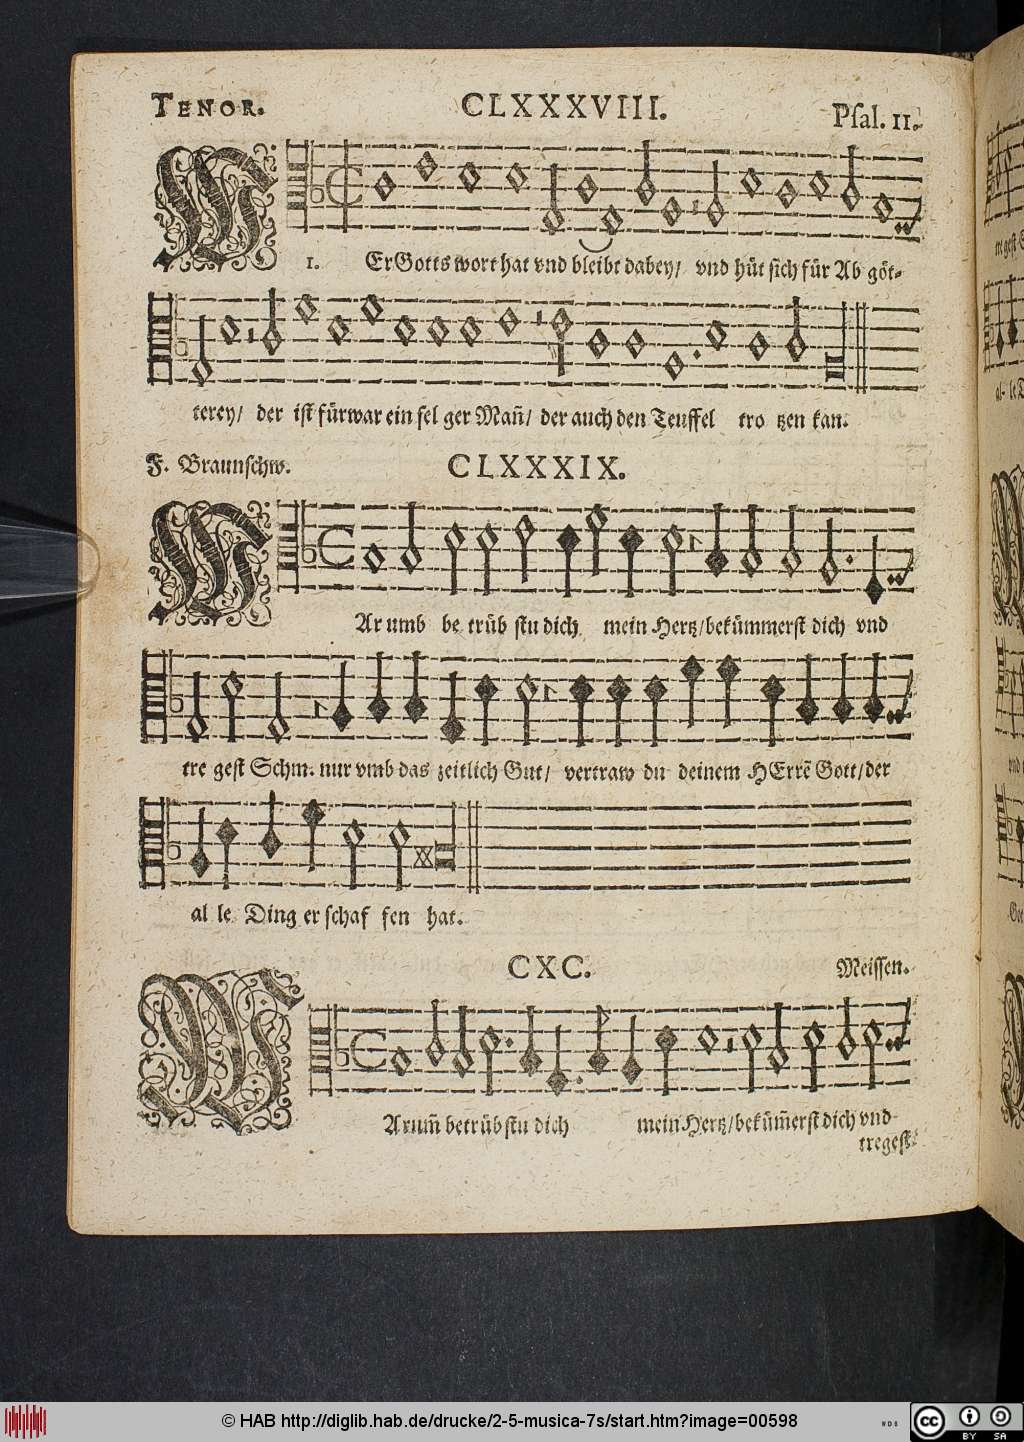 TENOR.
CLXXXVIII.
Psal. 11.
W
1. ErGotts wort hat vnd bleibt dabey/ vnd hüt sich für Ab göt-
terey/ der ist fürwar ein sel ger Mañ/ der auch den Teuffel tro tzen kan.
F. Braunschw.
CLXXXIX.
W
Ar umb be trüb stu dich mein Hertz/ bekümmerst dich vnd
tre gest Schm. nur vmb das zeitlich Gut/ vertraw du deinem HErrẽ Gott/ der
al le Ding er schaf fen hat.
CXC.
Meissen.
W
Arum̃ betrübstu dich mein Hertz/ beküm̃erst dich vnd
tregest
© HAB http://diglib.hab.de/drucke/2-5-musica-7s/start.htm?image=00598
cc BY SA